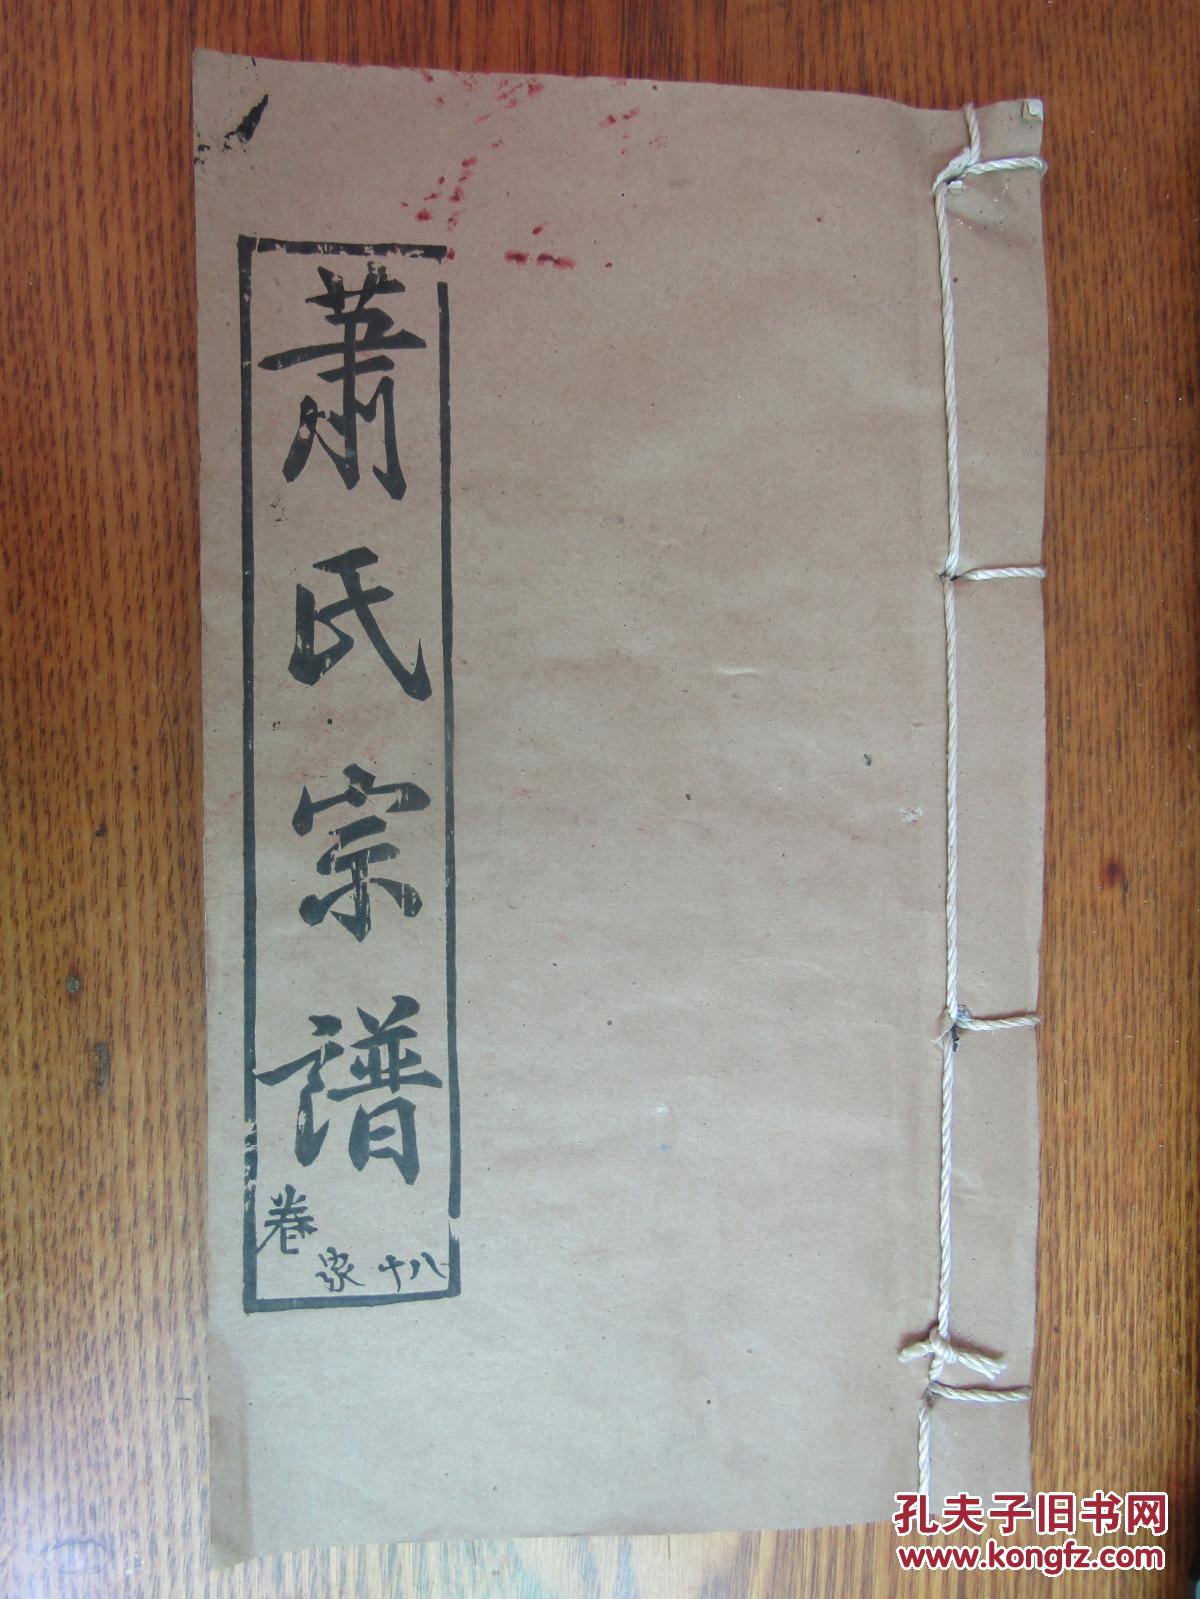 萧氏宗譜
卷
八十
孔夫子旧书网
www.kongfz.com